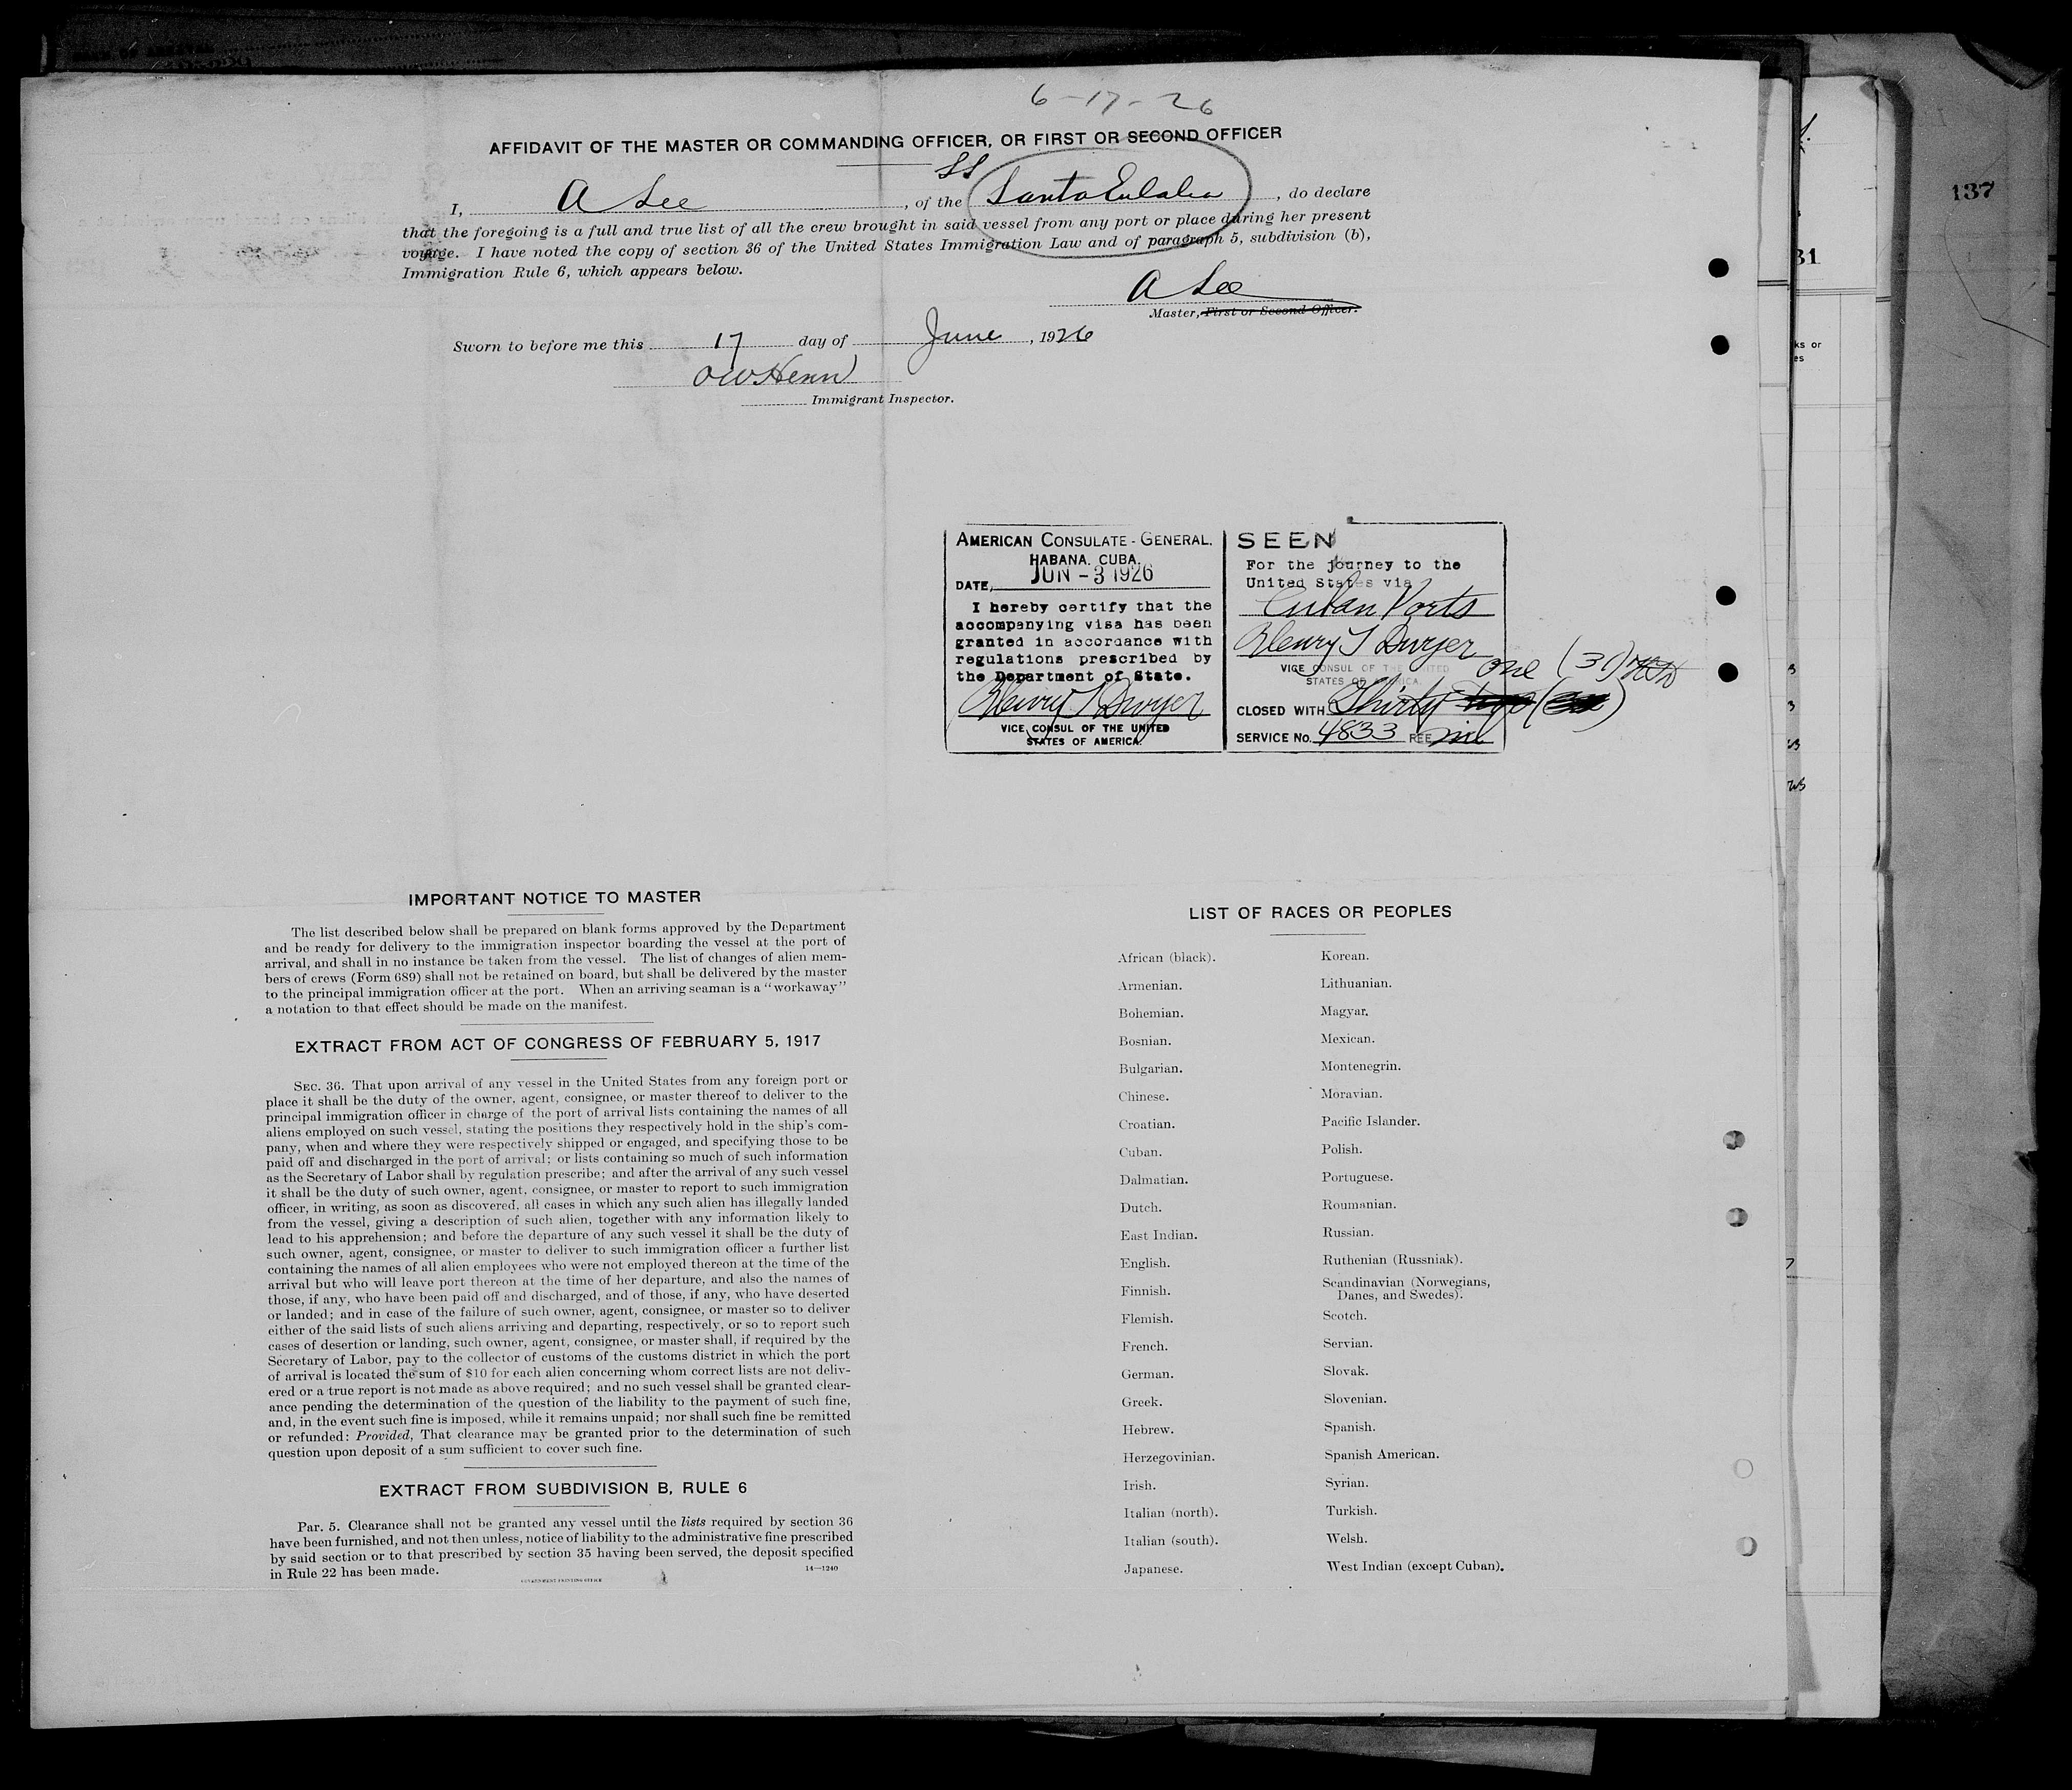 6-17-26
AFFIDAVIT OF THE MASTER OR COMMANDING OFFICER, OR FIRST OR SECOND OFFICER
SS
I, A Lee, of the Santa Eulalia, do declare
that the foregoing is a full and true list of all the crew brought in said vessel from any port or place during her present
voyage. I have noted the copy of section 36 of the United States Immigration Law and of paragraph 5, subdivision (b),
Immigration Rule 6, which appears below.
A Lee
Master, First or Second Officer.
Sworn to before me this 17 day of June, 1926
OW Henn
Immigrant Inspector.
137
31
ks or
es
AMERICAN CONSULATE-GENERAL.
HABANA. CUBA.
DATE, JUN - 3 1926
I hereby certify that the
accompanying visa has been
granted in accordance with
regulations prescribed by
the Department of State.
Henry T Dwyer
VICE CONSUL OF THE UNITED
STATES OF AMERICA.
SEEN
For the journey to the
United States via
Cuban Ports
Henry T Dwyer
VICE CONSUL OF THE UNITED
STATES OF AMERICA.
one (31)
CLOSED WITH Thirty two
SERVICE No. 4833 FEE nil
IMPORTANT NOTICE TO MASTER
The list described below shall be prepared on blank forms approved by the Department
and be ready for delivery to the immigration inspector boarding the vessel at the port of
arrival, and shall in no instance be taken from the vessel. The list of changes of alien mem-
bers of crews (Form 689) shall not be retained on board, but shall be delivered by the master
to the principal immigration officer at the port. When an arriving seaman is a "workaway"
a notation to that effect should be made on the manifest.
EXTRACT FROM ACT OF CONGRESS OF FEBRUARY 5, 1917
SEC. 36. That upon arrival of any vessel in the United States from any foreign port or
place it shall be the duty of the owner, agent, consignee, or master thereof to deliver to the
principal immigration officer in charge of the port of arrival lists containing the names of all
aliens employed on such vessel, stating the positions they respectively hold in the ship's com-
pany, when and where they were respectively shipped or engaged, and specifying those to be
paid off and discharged in the port of arrival; or lists containing so much of such information
as the Secretary of Labor shall by regulation prescribe; and after the arrival of any such vessel
it shall be the duty of such owner, agent, consignee, or master to report to such immigration
officer, in writing, as soon as discovered, all cases in which any such alien has illegally landed
from the vessel, giving a description of such alien, together with any information likely to
lead to his apprehension; and before the departure of any such vessel it shall be the duty of
such owner, agent, consignee, or master to deliver to such immigration officer a further list
containing the names of all alien employees who were not employed thereon at the time of the
arrival but who will leave port thereon at the time of her departure, and also the names of
those, if any, who have been paid off and discharged, and of those, if any, who have deserted
or landed; and in case of the failure of such owner, agent, consignee, or master so to deliver
either of the said lists of such aliens arriving and departing, respectively, or so to report such
cases of desertion or landing, such owner, agent, consignee, or master shall, if required by the
Secretary of Labor, pay to the collector of customs of the customs district in which the port
of arrival is located the sum of $10 for each alien concerning whom correct lists are not deliv-
ered or a true report is not made as above required; and no such vessel shall be granted clear-
ance pending the determination of the question of the liability to the payment of such fine,
and, in the event such fine is imposed, while it remains unpaid; nor shall such fine be remitted
or refunded: Provided, That clearance may be granted prior to the determination of such
question upon deposit of a sum sufficient to cover such fine.
EXTRACT FROM SUBDIVISION B, RULE 6
Par. 5. Clearance shall not be granted any vessel until the lists required by section 36
have been furnished, and not then unless, notice of liability to the administrative fine prescribed
by said section or to that prescribed by section 35 having been served, the deposit specified
in Rule 22 has been made.
14—1240
GOVERNMENT PRINTING OFFICE
LIST OF RACES OR PEOPLES
African (black).
Armenian.
Bohemian.
Bosnian.
Bulgarian.
Chinese.
Croatian.
Cuban.
Dalmatian.
Dutch.
East Indian.
English.
Finnish.
Flemish.
French.
German.
Greek.
Hebrew.
Herzegovinian.
Irish.
Italian (north).
Italian (south).
Japanese.
Korean.
Lithuanian.
Magyar.
Mexican.
Montenegrin.
Moravian.
Pacific Islander.
Polish.
Portuguese.
Roumanian.
Russian.
Ruthenian (Russniak).
Scandinavian (Norwegians,
Danes, and Swedes).
Scotch.
Servian.
Slovak.
Slovenian.
Spanish.
Spanish American.
Syrian.
Turkish.
Welsh.
West Indian (except Cuban).